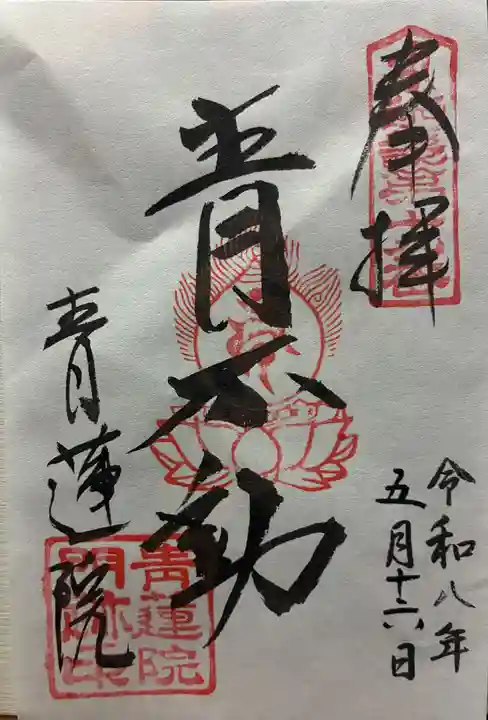 奉拝
令和八年
五月十六日
青不動
青蓮院
青蓮院
門跡印